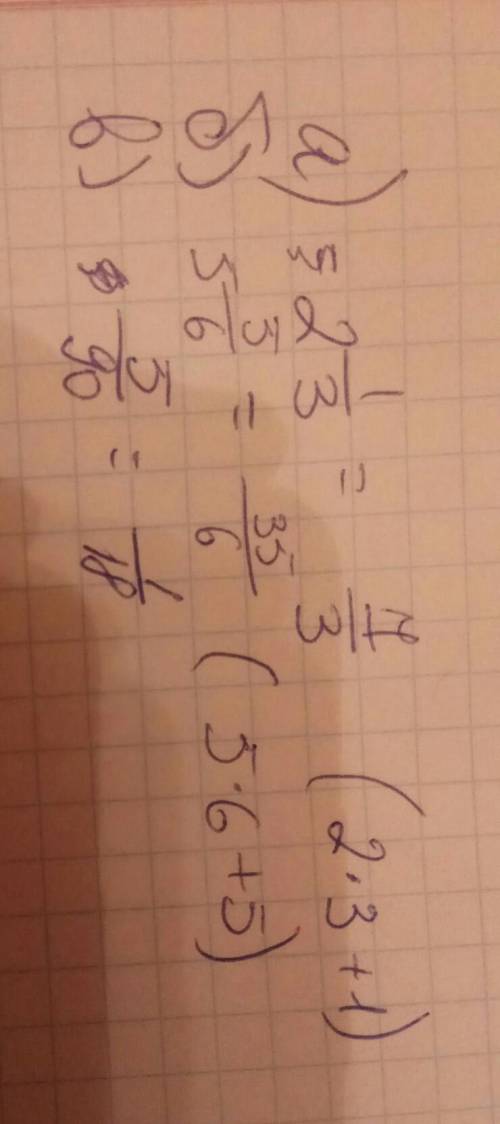 а) 2 1/3 = 7/3 (2·3+1)
б) 5 5/6 = 35/6 (5·6+5)
в) 5/90 = 1/18